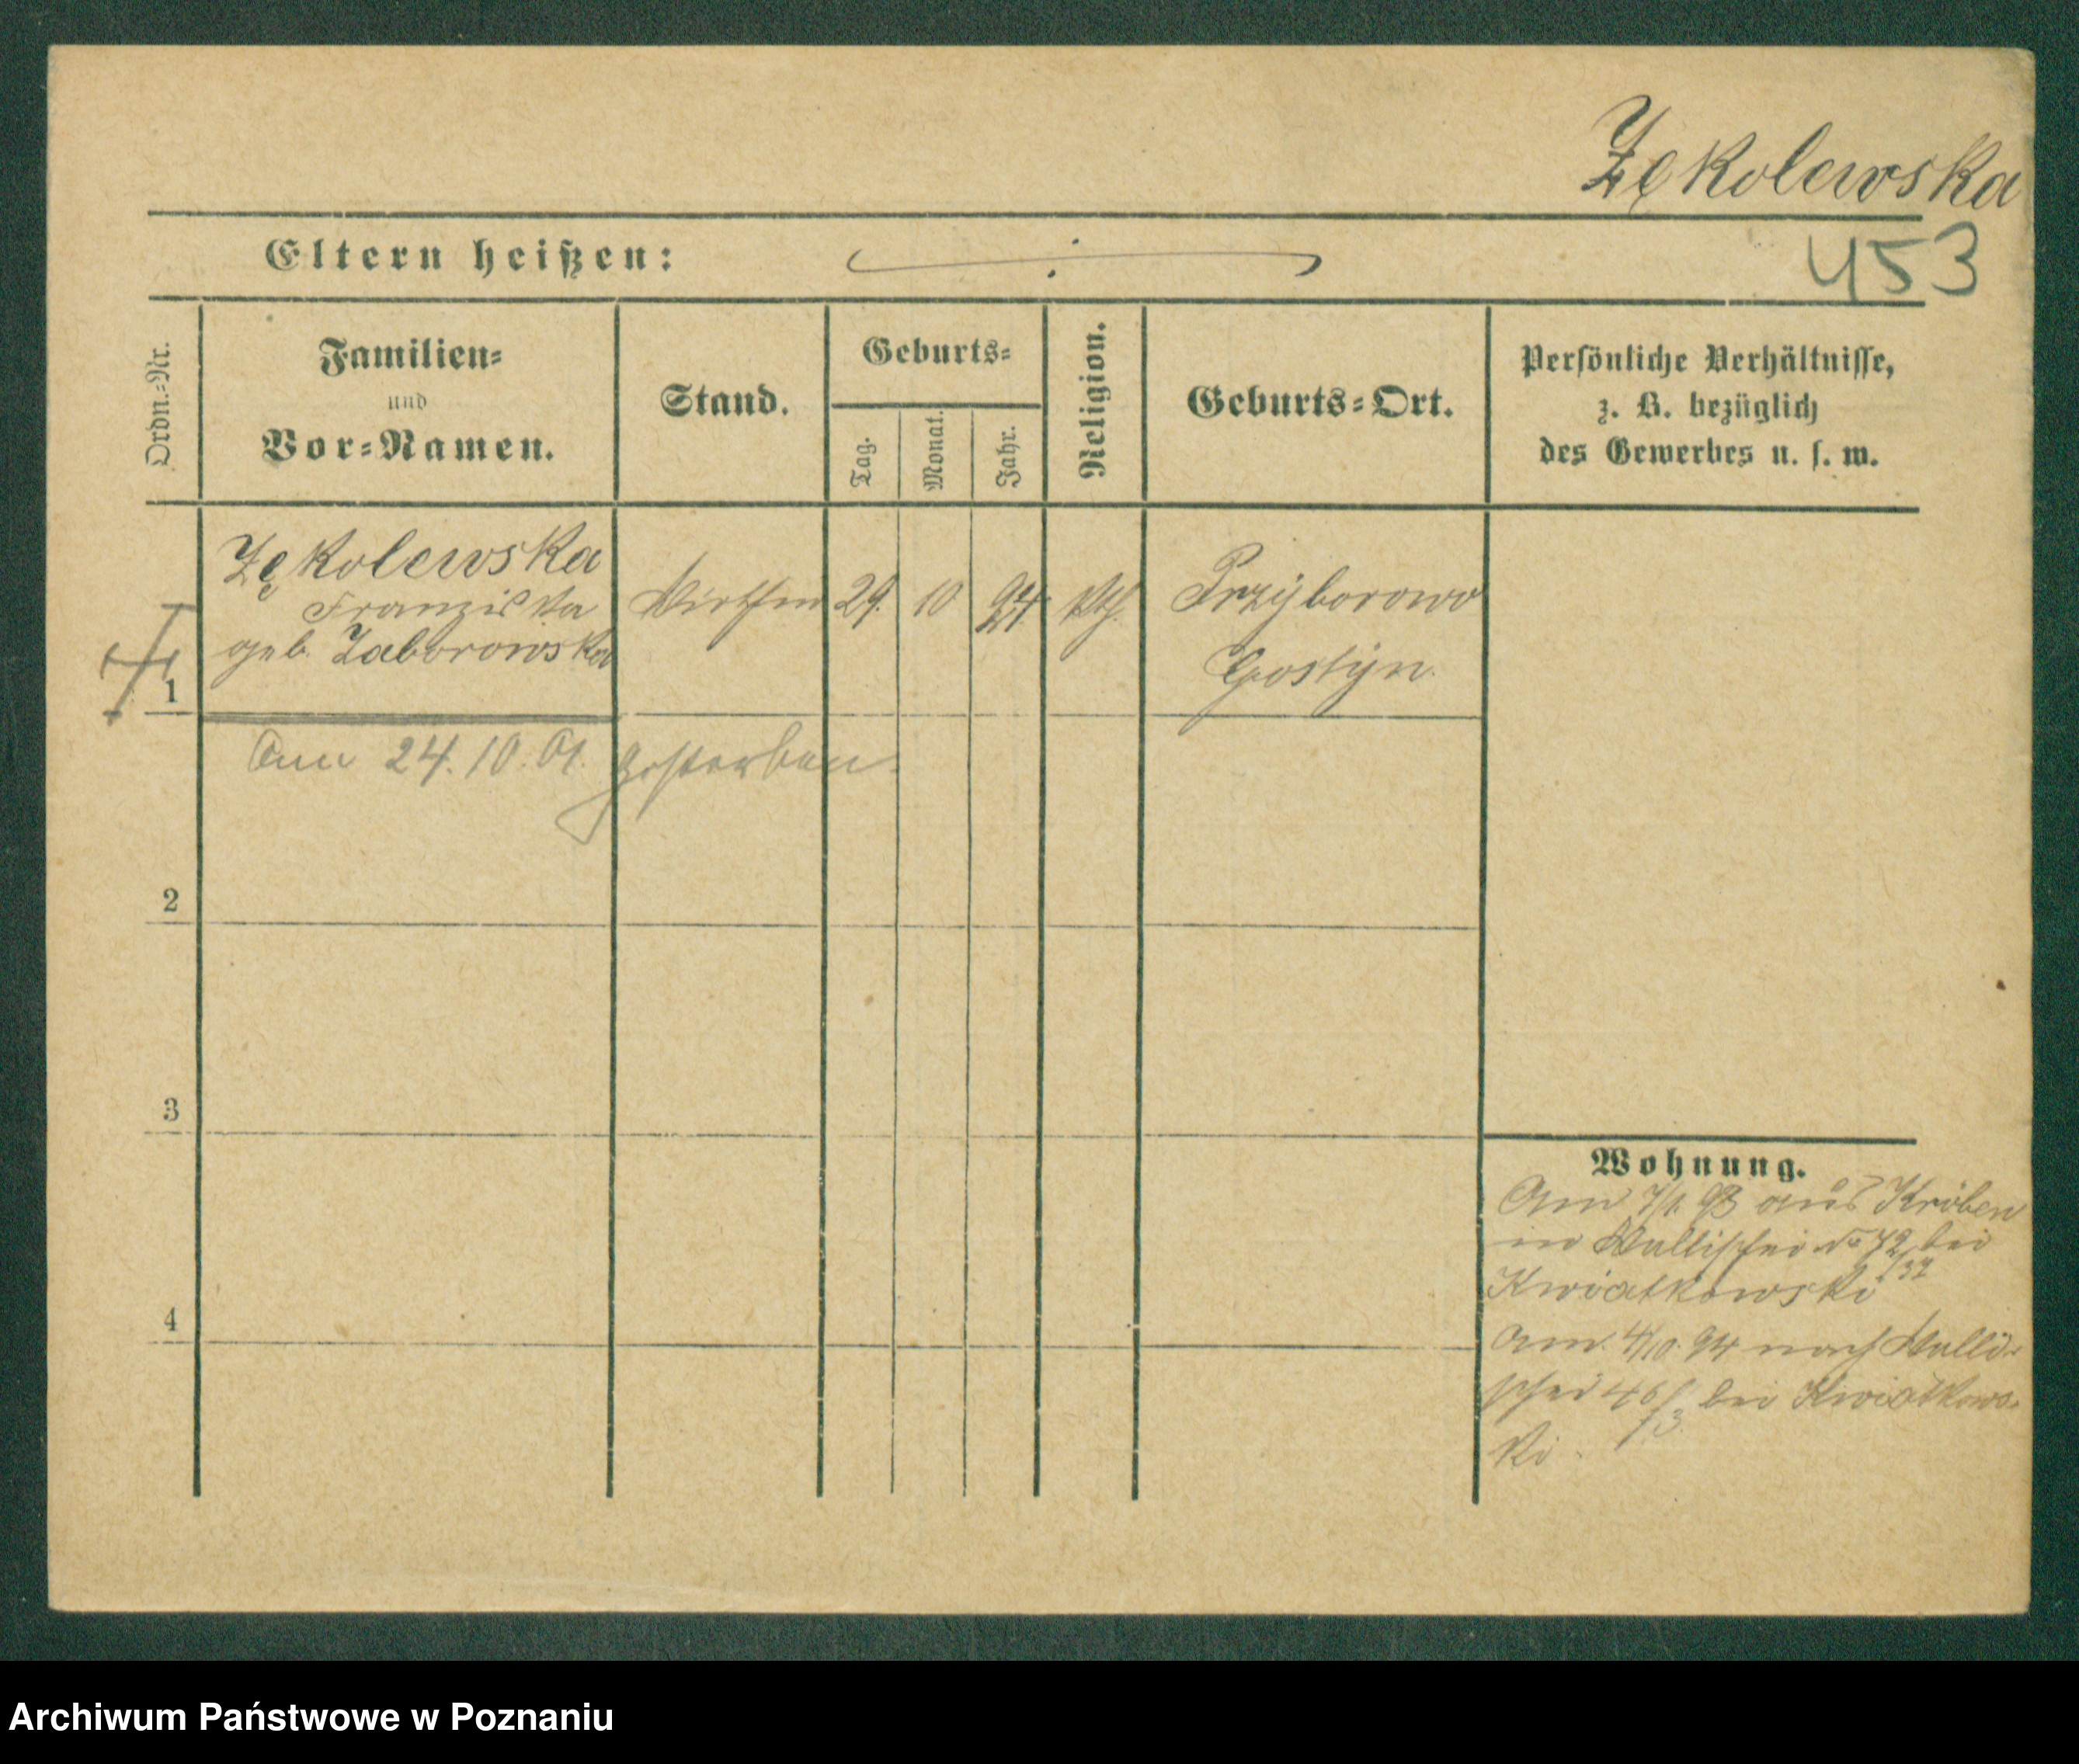 Zękolewska
453
Eltern heißen:
Ordn.-Nr.
Familien-
und
Vor-Namen.
Stand.
Geburts-
Tag.
Monat.
Jahr.
Religion.
Geburts-Ort.
Persönliche Verhältnisse,
z. B. bezüglich
des Gewerbes u. s. w.
1
Zękolewska
Franziska
geb. Zaborowska
29. 10
kth.
Przyborowo
Gostyn.
Am 24. 10. 01. gestorben.
2
3
4
Wohnung.
Am 7/1. 93 aus Kröben
in Wallischei No 72 bei
Kwiatkowski
am 4/10. 94 nach Walli-
schei 46/3 bei Kwiatkows-
ki.
Archiwum Państwowe w Poznaniu